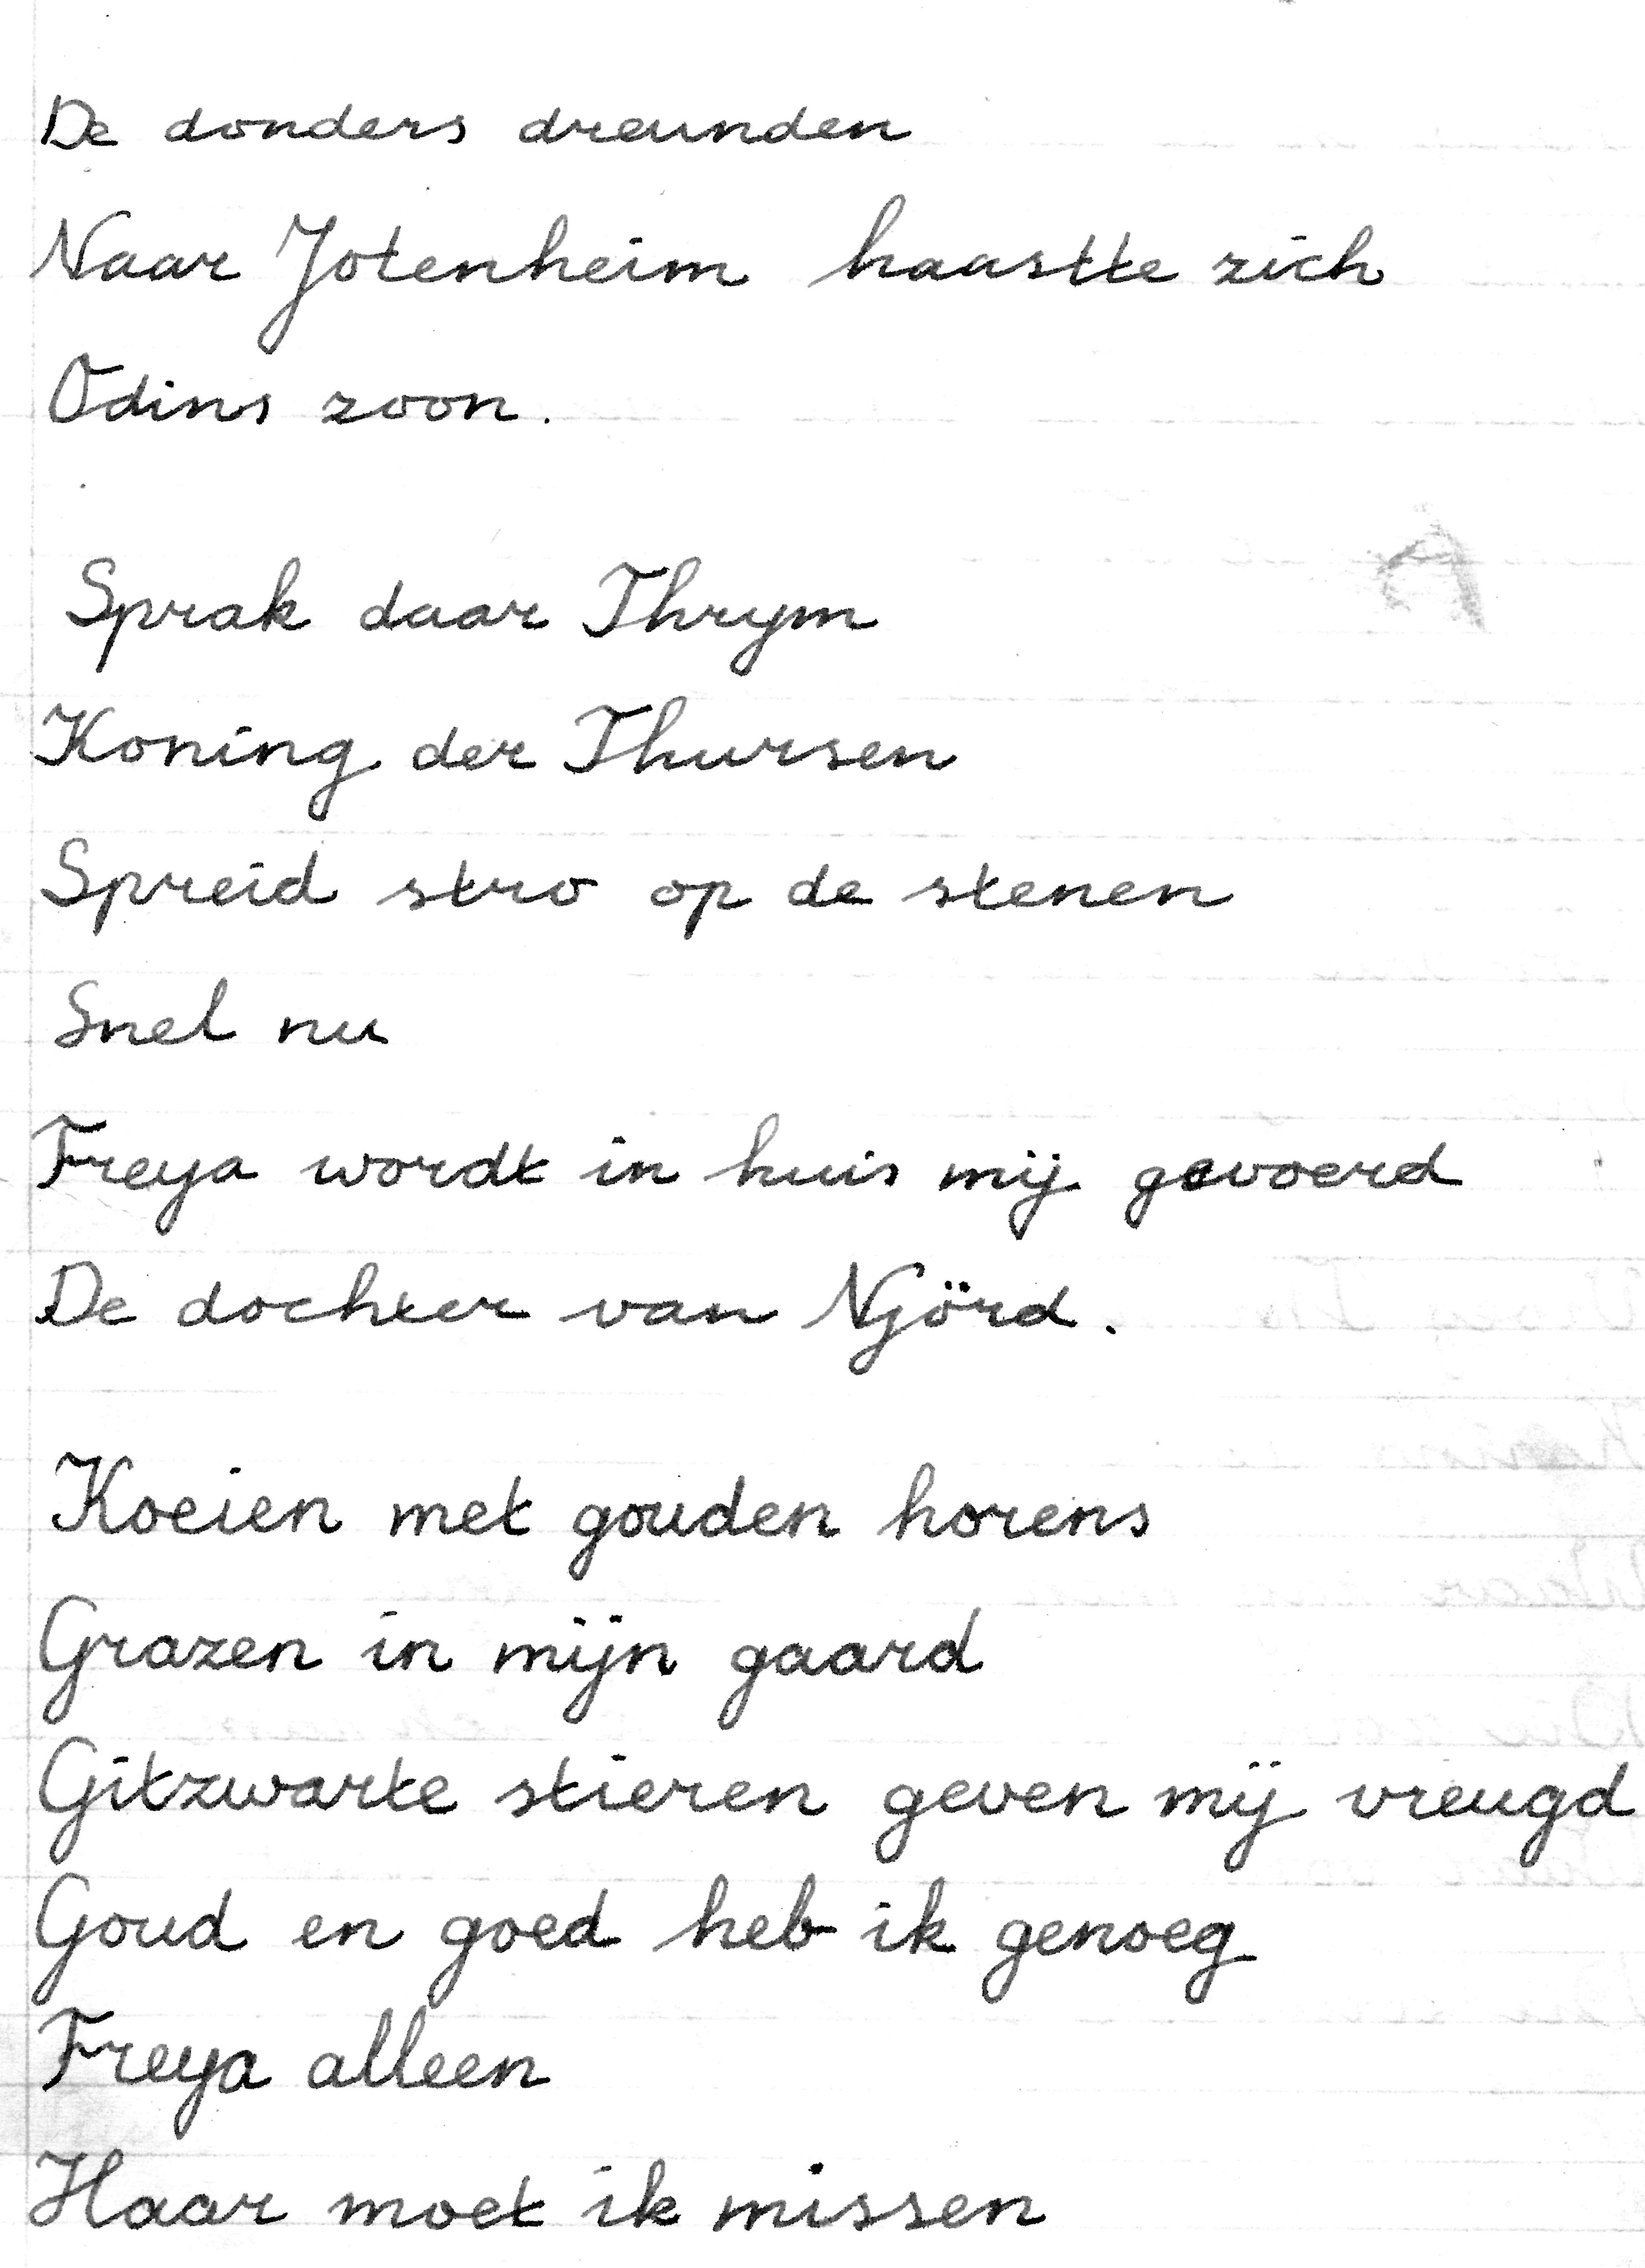 De donders dreunden
Naar Jotenheim haastte zich
Odins zoon.
Sprak daar Thrym
Koning der Thursen
Spreid stro op de stenen
Snel nu
Freya wordt in huis mij gevoerd
De dochter van Njörd.
Koeien met gouden horens
Grazen in mijn gaard
Gitzwarte stieren geven mij vreugd
Goud en goed heb ik genoeg
Freya alleen
Haar moet ik missen